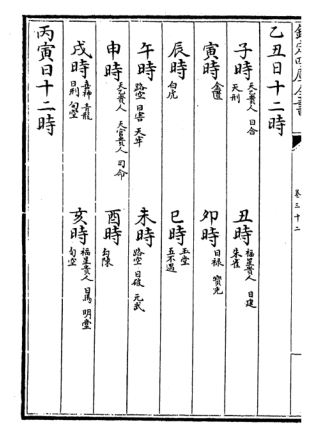 欽定四庫全書
卷三十二
乙丑日十二時
子時 天乙貴人 日合 天刑
丑時 福星貴人 日建 朱雀
寅時 金匱
卯時 日祿 寶光
辰時 白虎
巳時 玉堂 五不遇
午時 路空 日害 天牢
未時 路空 日破 元武
申時 天乙貴人 天官貴人 司命
酉時 勾陳
戌時 喜神 青龍 日刑 旬空
亥時 福星貴人 日馬 明堂 旬空
丙寅日十二時